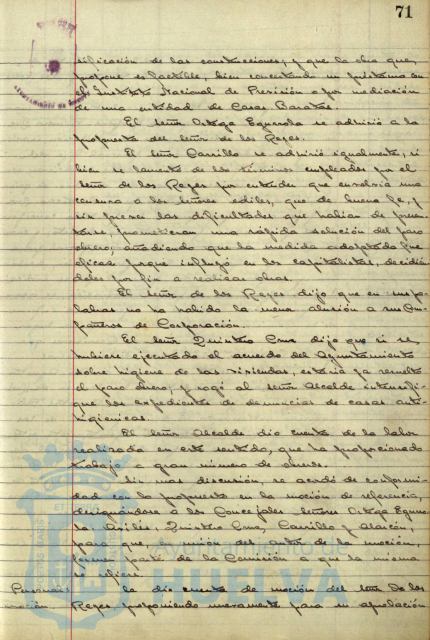 71
sificación de las construcciones, y que la obra que
propone es factible, bien concertando un préstamo con
el Instituto Nacional de Previsión o por mediación
de una entidad de Casas Baratas.
El señor Ortega Equerola se adhirió a la
propuesta del señor de los Reyes.
El señor Carrillo se adhirió igualmente, si
bien se lamentó de los términos empleados por el
señor de los Reyes por entender que envolvía una
censura a los señores ediles, que de buena fe, y
sin prever las dificultades que habían de presen
tarse, prometieran una rápida solución del paro
obrero; añadiendo que la medida adoptada fué
eficaz, porque influyó en los capitalistas, decidién
doles por fin a realizar obras.
El señor de los Reyes dijo que en sus pa
labras no ha habido la menor alusión a sus Com
pañeros de Corporación.
El señor Quintero Cruz dijo que si se
hubiere ejecutado el acuerdo del Ayuntamiento
sobre higiene de las viviendas, estaría ya resuelto
el paro obrero; y rogó al señor Alcalde intensifi
que los expedientes de denuncias de casas anti
higiénicas.
El señor Alcalde dio cuenta de la labor
realizada en este sentido, que ha proporcionado
trabajo a gran número de obreros.
Sin mas discusión, se acordó de conformi
dad con lo propuesto en la moción de referencia,
designándose a los Concejales señores Ortega Eque
rola, Quintero Cruz, Carrillo y Alarcón,
para que, en unión del autor de la moción,
formen parte de la Comisión a que la misma
se refiere.
Se dio cuenta de moción del señor de los
Reyes proponiendo nuevamente para su aprobación
Ayuntamiento de
HUELVA